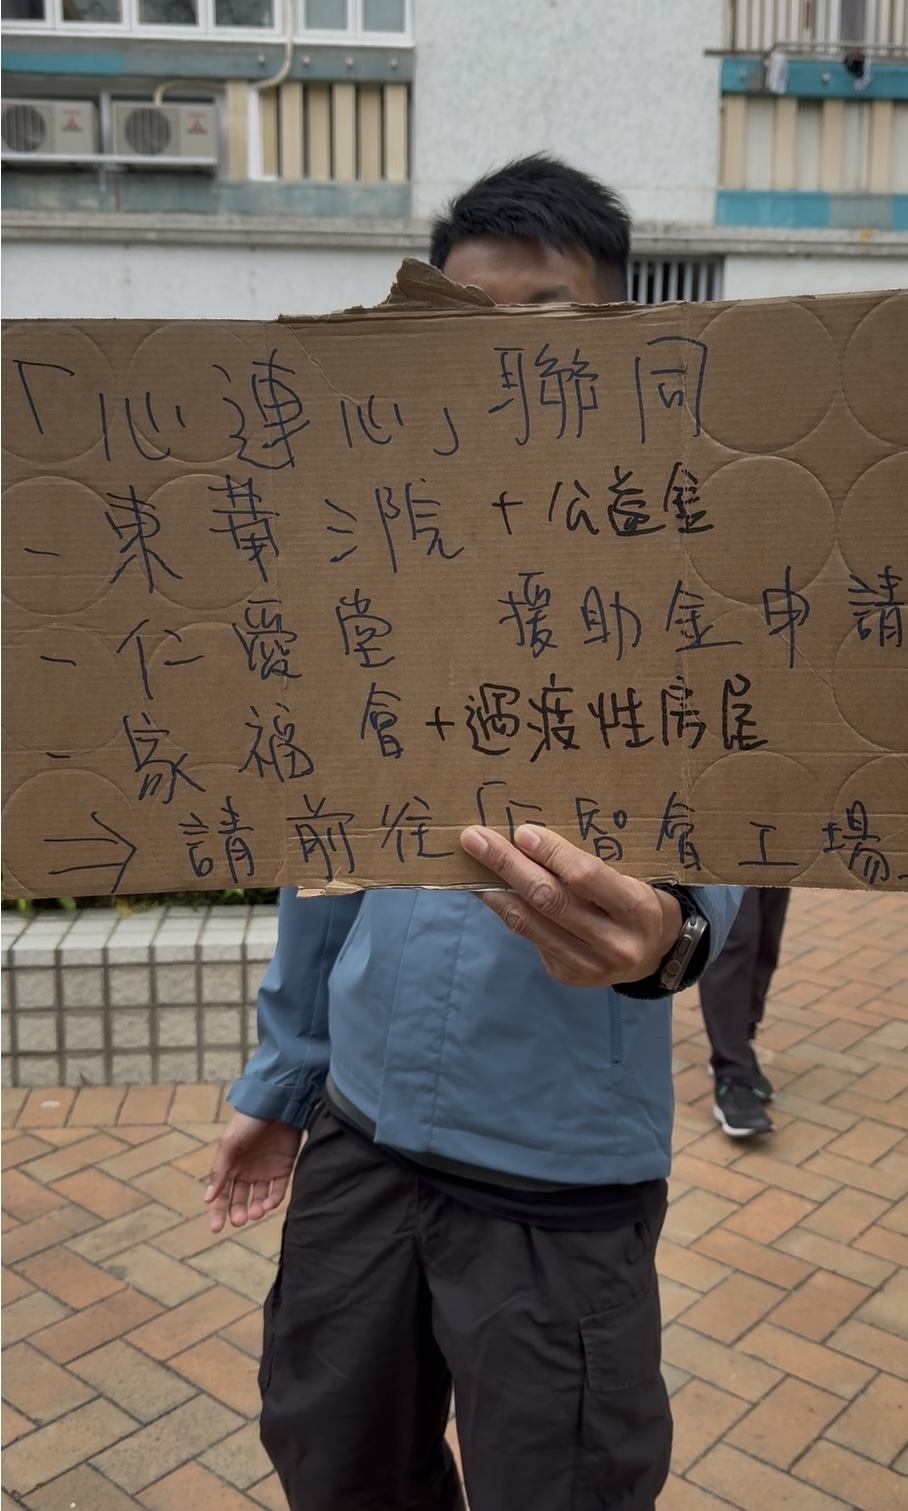 「心連心」聯同
- 東華三院 + 公益金
- 仁愛堂 援助金申請
- 家福會 + 過疫性房屋
⇒ 請前往「匡智會工場